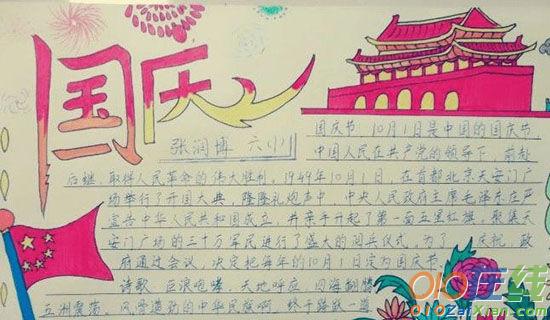 国庆
张润博 六(1)
国庆节,10月1日是中国的国庆节,
中国人民在共产党的领导下,前赴
后继,取得人民革命的伟大胜利,1949年10月1日,在首都北京天安门广
场举行了开国大典,隆隆礼炮声中,中央人民政府主席毛泽东庄严
宣告中华人民共和国成立,并亲手升起了第一面五星红旗,聚集天
安门广场的三十万军民进行了盛大的阅兵仪式,为了 庆祝,政
府通过会议,决定把每年的10月1日定为国庆节。
诗歌,巨浪咆哮,天地呼应,四海翻腾
五洲震荡,风雪造访的中华民族啊,终于踏跃一道
在线
ZaiXian.com